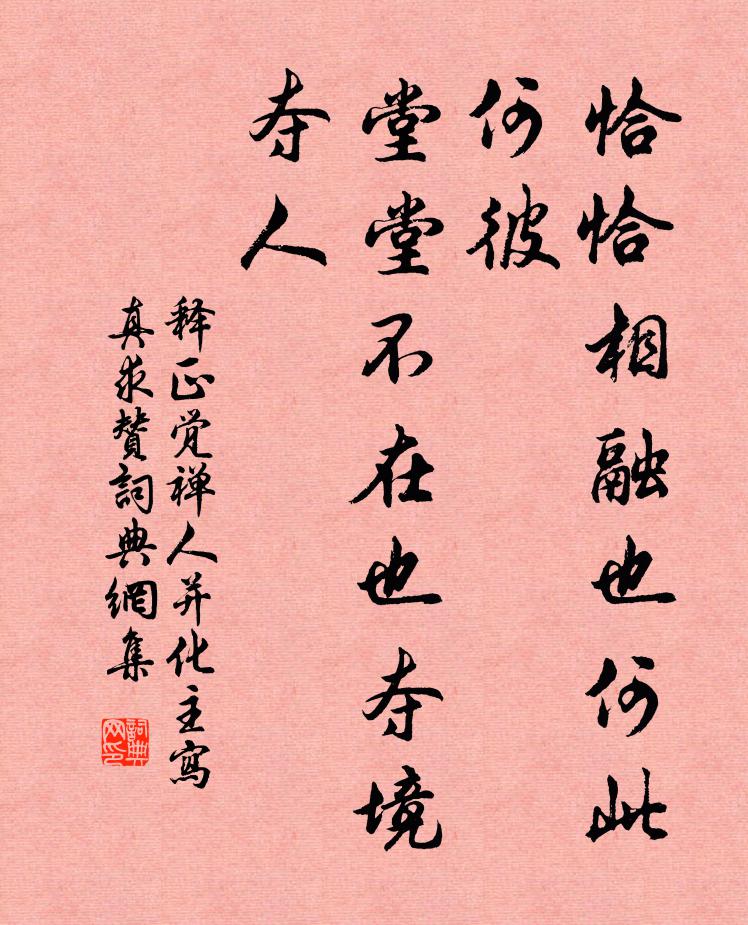 恰恰相融也何此
何彼
堂堂不在也夺境
夺人
释正觉禅人并化主寫
真求赞詞典網集
詞典
网印